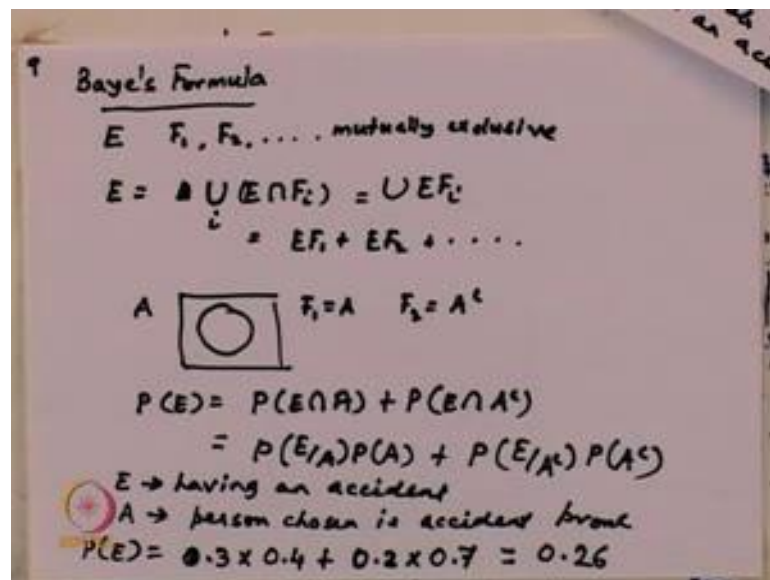 9
Baye's Formula
E F₁, F₂, .... mutually exclusive
E = ⋃ᵢ (E∩Fᵢ) = ∪ EFᵢ
= EF₁ + EF₂ + ....
A F₁ = A F₂ = Aᶜ
P(E) = P(E∩A) + P(E∩Aᶜ)
= P(E/A)P(A) + P(E/Aᶜ) P(Aᶜ)
E → having an accident
A → person chosen is accident prone
P(E) = 0.3 x 0.4 + 0.2 x 0.7 = 0.26
an acc